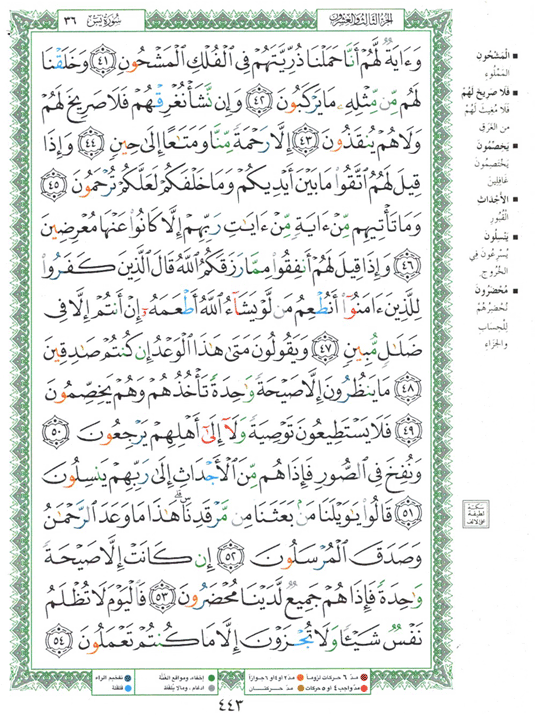 الجزء الثالث والعشرون
سورة يس ٣٦
وَءَايَةٌ لَّهُمْ أَنَّا حَمَلْنَا ذُرِّيَّتَهُمْ فِى الْفُلْكِ الْمَشْحُونِ ٤١ وَخَلَقْنَا
لَهُم مِّن مِّثْلِهِۦ مَا يَرْكَبُونَ ٤٢ وَإِن نَّشَأْ نُغْرِقْهُمْ فَلَا صَرِيخَ لَهُمْ
وَلَا هُمْ يُنقَذُونَ ٤٣ إِلَّا رَحْمَةً مِّنَّا وَمَتَاعًا إِلَىٰ حِينٍ ٤٤ وَإِذَا
قِيلَ لَهُمُ اتَّقُوا مَا بَيْنَ أَيْدِيكُمْ وَمَا خَلْفَكُمْ لَعَلَّكُمْ تُرْحَمُونَ ٤٥
وَمَا تَأْتِيهِم مِّنْ ءَايَةٍ مِّنْ ءَايَاتِ رَبِّهِمْ إِلَّا كَانُوا عَنْهَا مُعْرِضِينَ
٤٦ وَإِذَا قِيلَ لَهُمْ أَنفِقُوا مِمَّا رَزَقَكُمُ اللَّهُ قَالَ الَّذِينَ كَفَرُوا
لِلَّذِينَ ءَامَنُوا أَنُطْعِمُ مَن لَّوْ يَشَاءُ اللَّهُ أَطْعَمَهُۥ إِنْ أَنتُمْ إِلَّا فِى
ضَلَالٍ مُّبِينٍ ٤٧ وَيَقُولُونَ مَتَىٰ هَٰذَا الْوَعْدُ إِن كُنتُمْ صَادِقِينَ
٤٨ مَا يَنظُرُونَ إِلَّا صَيْحَةً وَاحِدَةً تَأْخُذُهُمْ وَهُمْ يَخِصِّمُونَ
٤٩ فَلَا يَسْتَطِيعُونَ تَوْصِيَةً وَلَا إِلَىٰ أَهْلِهِمْ يَرْجِعُونَ ٥٠
وَنُفِخَ فِى الصُّورِ فَإِذَا هُم مِّنَ الْأَجْدَاثِ إِلَىٰ رَبِّهِمْ يَنسِلُونَ
٥١ قَالُوا يَاوَيْلَنَا مَن بَعَثَنَا مِن مَّرْقَدِنَا هَٰذَا مَا وَعَدَ الرَّحْمَٰنُ
وَصَدَقَ الْمُرْسَلُونَ ٥٢ إِن كَانَتْ إِلَّا صَيْحَةً
وَاحِدَةً فَإِذَا هُمْ جَمِيعٌ لَّدَيْنَا مُحْضَرُونَ ٥٣ فَالْيَوْمَ لَا تُظْلَمُ
نَفْسٌ شَيْئًا وَلَا تُجْزَوْنَ إِلَّا مَا كُنتُمْ تَعْمَلُونَ ٥٤
■ الْمَشْحُونِ
الْمَمْلُوءِ
■ فَلَا صَرِيخَ لَهُمْ
فَلَا مُغِيثَ لَهُمْ
من الغَرَقِ
■ يَخِصِّمُونَ
يَخْتَصِمُونَ
غَافِلِينَ
■ الْأَجْدَاثِ
الْقُبُورِ
■ يَنسِلُونَ
يُسْرِعُونَ فِي
الخُرُوجِ
■ مُحْضَرُونَ
نُحْضِرُهُمْ
لِلْحِسَابِ
والجَزَاءِ
سكتة
لطيفة
مد ٦ حركات لزوماً ● مد ٢ أو ٤ أو ٦ جوازاً
مد واجب ٤ أو ٥ حركات ● مد حركتان
إخفاء، ومواقع الغنة
إدغام، وما لا يلفظ
تفخيم الراء
قلقلة
٤٤٣